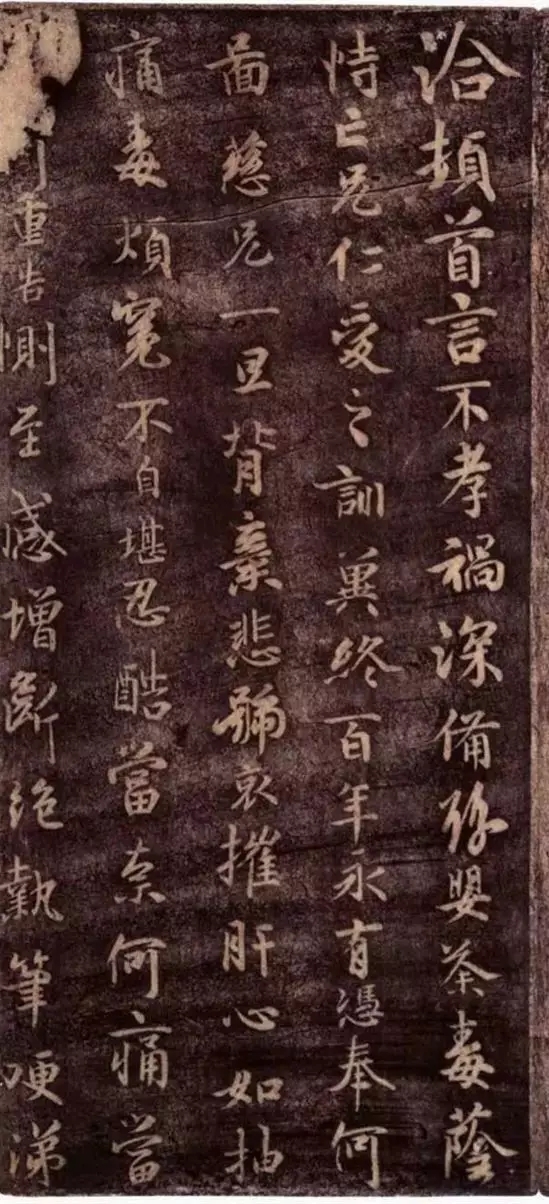 洽頓首言不孝禍深備嬰荼毒蔭
恃亡兄仁愛之訓冀終百年永有憑奉何
圖慈兄一旦背棄悲號哀摧肝心如抽
痛毒煩冤不自堪忍酷當奈何痛當
重告惻至感增斷絕執筆哽涕